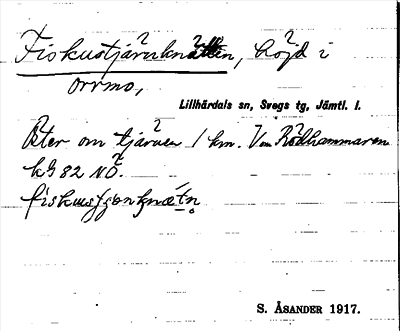 Fiskustjärnknätten, höjd i
orrmo,
Lillhärdals sn, Svegs tg, Jämtl. l.
Öster om tjärnen 1 km. V om Rödhammaren
kG 82 NÖ.
S. ÅSANDER 1917.